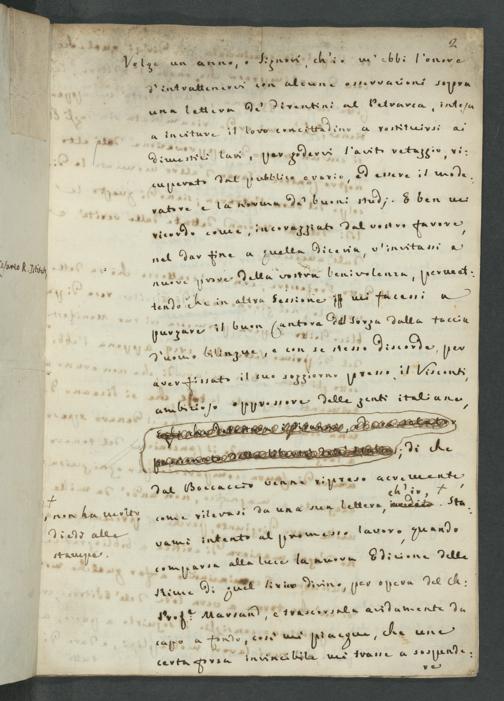 2
Volge un anno, o Signori, ch'io m'ebbi l'onore
d'intrattenervi con alcune osservazioni sopra
una lettera de' Fiorentini al Petrarca, intesa
a invitare il loro concittadino a rostituirsi ai
dimestici lari, per godervi l'avito retaggio, ri-
cuperato dal pubblico erario, ed essere il mode-
ratore e la norma de' buoni studj. E ben mi
ricordo come, incoraggiato dal vostro favore,
nel dar fine a quella diceria, v'invitassi a
nuove prove della vostra benivolenza, permet-
tendo che in altra Sessione mi facessi a
purgare il buon Cantore di Sorga dalla taccia
d'uomo bilingue, e con se stesso discorde, per
aver fissato il suo soggiorno presso il Visconti,
ambizioso oppressore delle genti italiane,
; di che
dal Boccaccio venne ripreso acremente,
come rilevasi da una sua lettera, ch'io, +
. Sta-
+
non ha molto,
diedi alle
stampe.
vami intento al promesso lavoro, quando
comparsa alla luce la nuova Edizione delle
Rime di quel lirico divino, per opera del ch:
Profe. Marsand, e trascorsala avidamente da
capo a fondo, così mi piacque, che una
certa forza invincibile mi trasse a sospende-
re